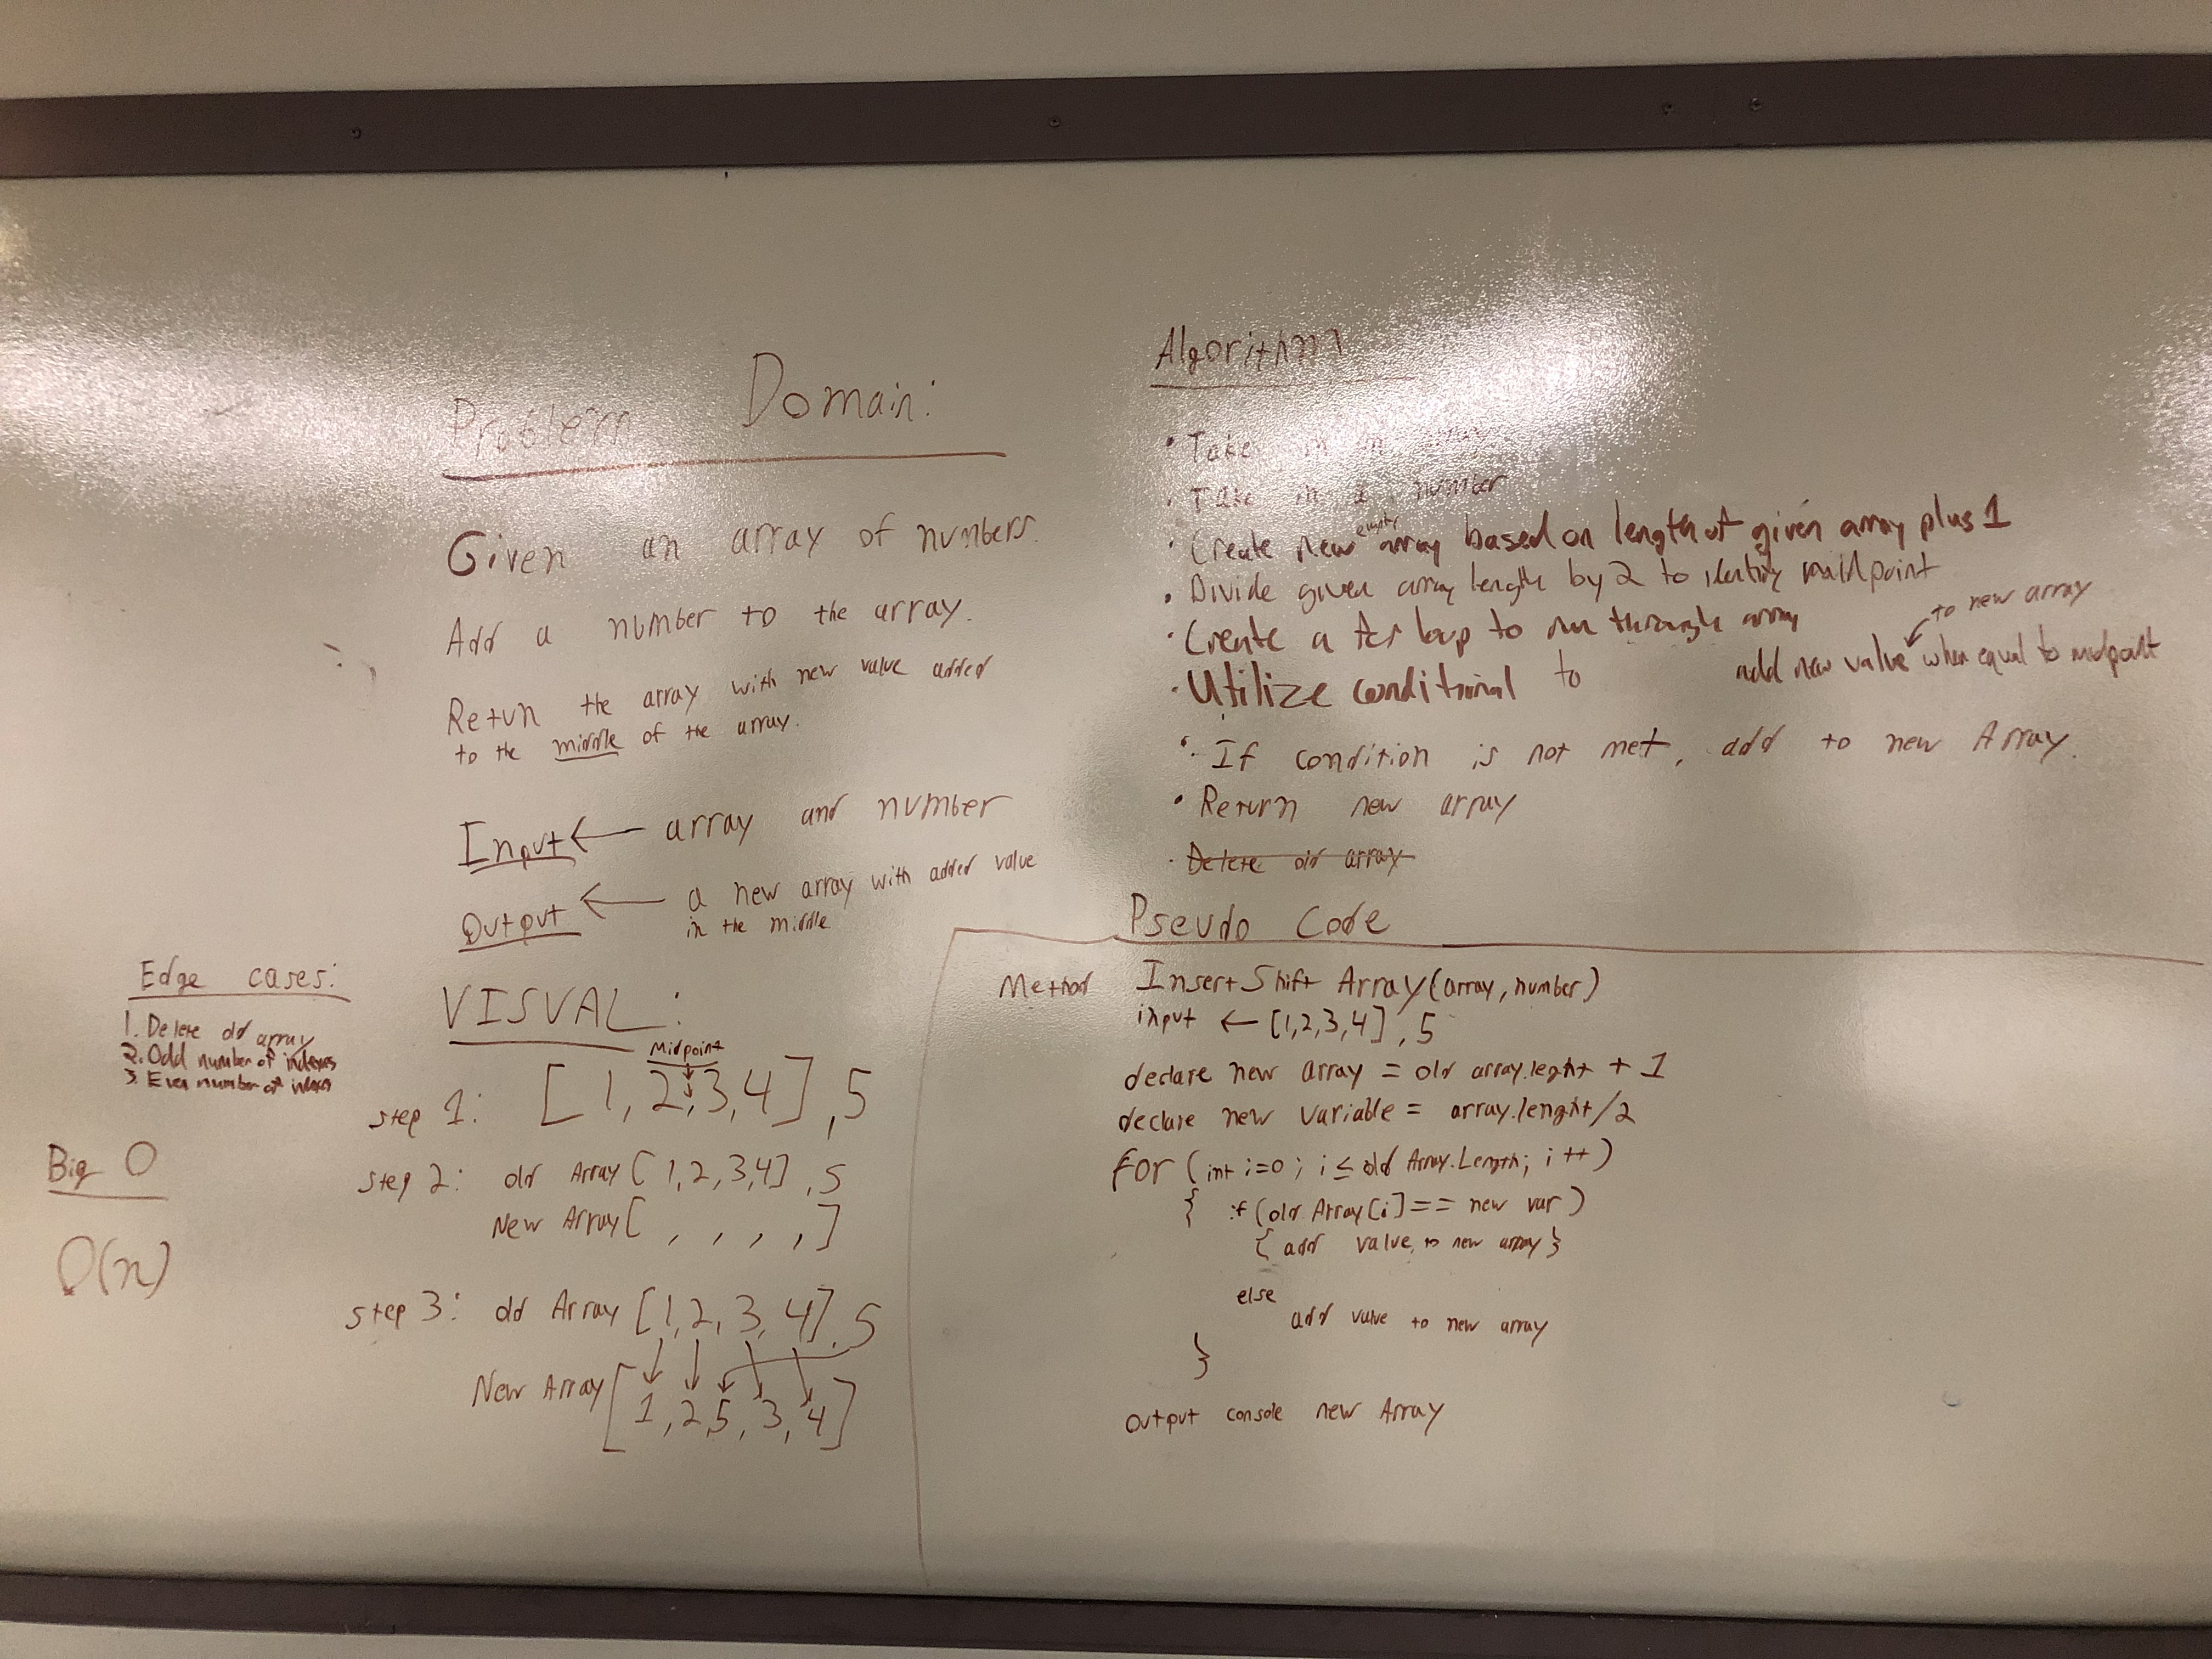 Problem Domain:
Given an array of numbers.
Add a number to the array.
Return the array with new value added
to the middle of the array.
Input ← array and number
Output ← a new array with added value
in the middle
Edge cases:
1. Delete old array
2. Odd number of indexes
3. Even number of indexes
Big O
O(n)
VISUAL:
Midpoint
step 1: [1,2,3,4],5
step 2: old Array [1,2,3,4],5
New Array[ , , , , ]
step 3: old Array [1,2,3,4],5
New Array[1,2,5,3,4]
Algorithm
• Take in
• Take in a number
empty
• Create new array based on length of given array plus 1
• Divide given array length by 2 to identify midpoint
• Create a for loop to run through array
to new array
• Utilize conditional to add new value when equal to midpoint
• If condition is not met, add to new Array.
• Return new array
• Delete old array
Pseudo Code
Method InsertShift Array(array, number)
input ← [1,2,3,4],5
declare new array = old array.leght + 1
declare new variable = array.lenght/2
for (int i=0; i ≤ old Array.Length; i++)
{ if (old Array[i] == new var)
{ add value to new array }
else
add value to new array
}
output console new Array